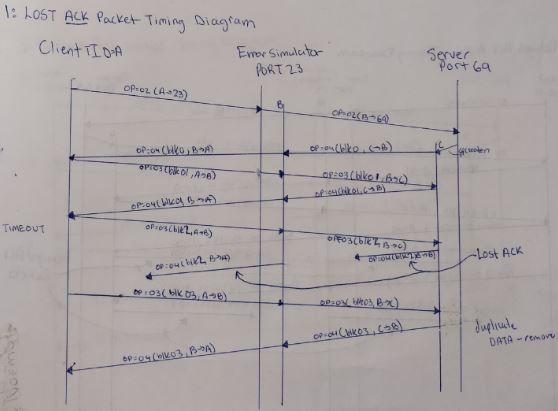 1: LOST ACK Packet Timing Diagram
Client TID=A
Error Simulator
PORT 23
Server
Port 69
OP=02 (A→23)
B
OP=02(B→69)
C
OP=04(blk0, B→A)
OP=04(blk0, C→B)
OP=03(blk01, A→B)
OP=03(blk01, B→C)
OP=04(blk01, B→A)
OP=04(blk01, C→B)
TIMEOUT
OP=03(blk2, A→B)
OP=03(blk2, B→C)
OP=04(blk2, B→A)
Lost ACK
OP=03(blk03, A→B)
OP=03(blk03, B→C)
OP=04(blk03, C→B)
OP=04(blk03, B→A)
duplicate
DATA - remove